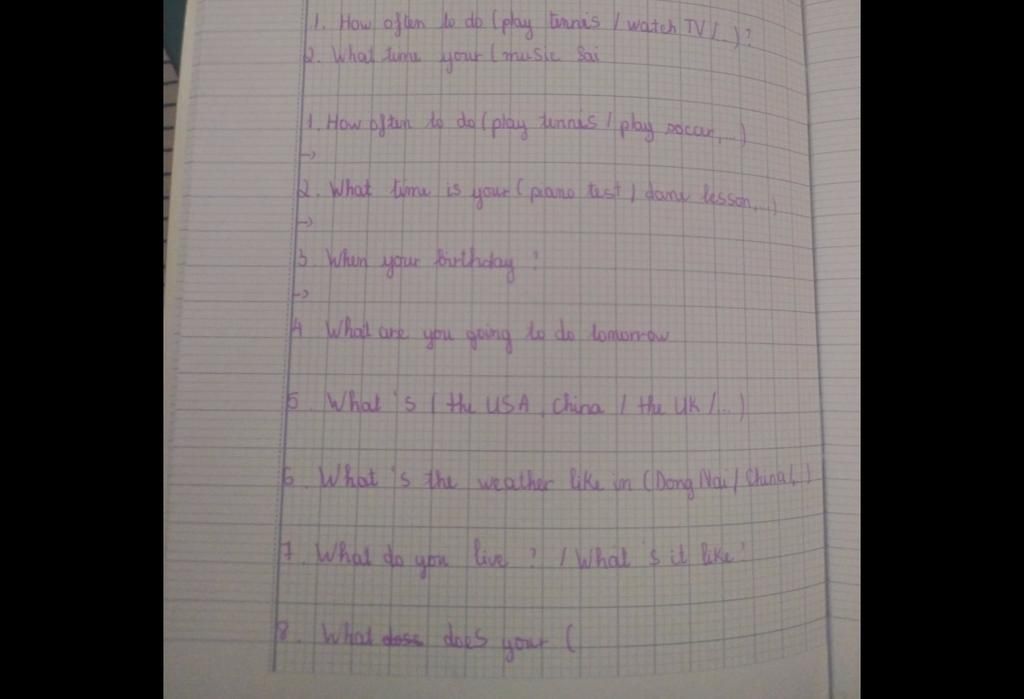 1. How often to do (play tennis / watch TV /...)?
2. What time your ( music Sai
1. How often to do (play tennis / play soccer,...)
->
2. What time is your ( piano test / dane lesson,...)
->
3 When your birthday ?
->
4 What are you going to do tomorrow
5. What 's ( the USA , China / the UK /...)
6. What 's the weather like in (Dong Nai / China /...)
7. What do you live ? / What 's it like ?
8. What does does your (